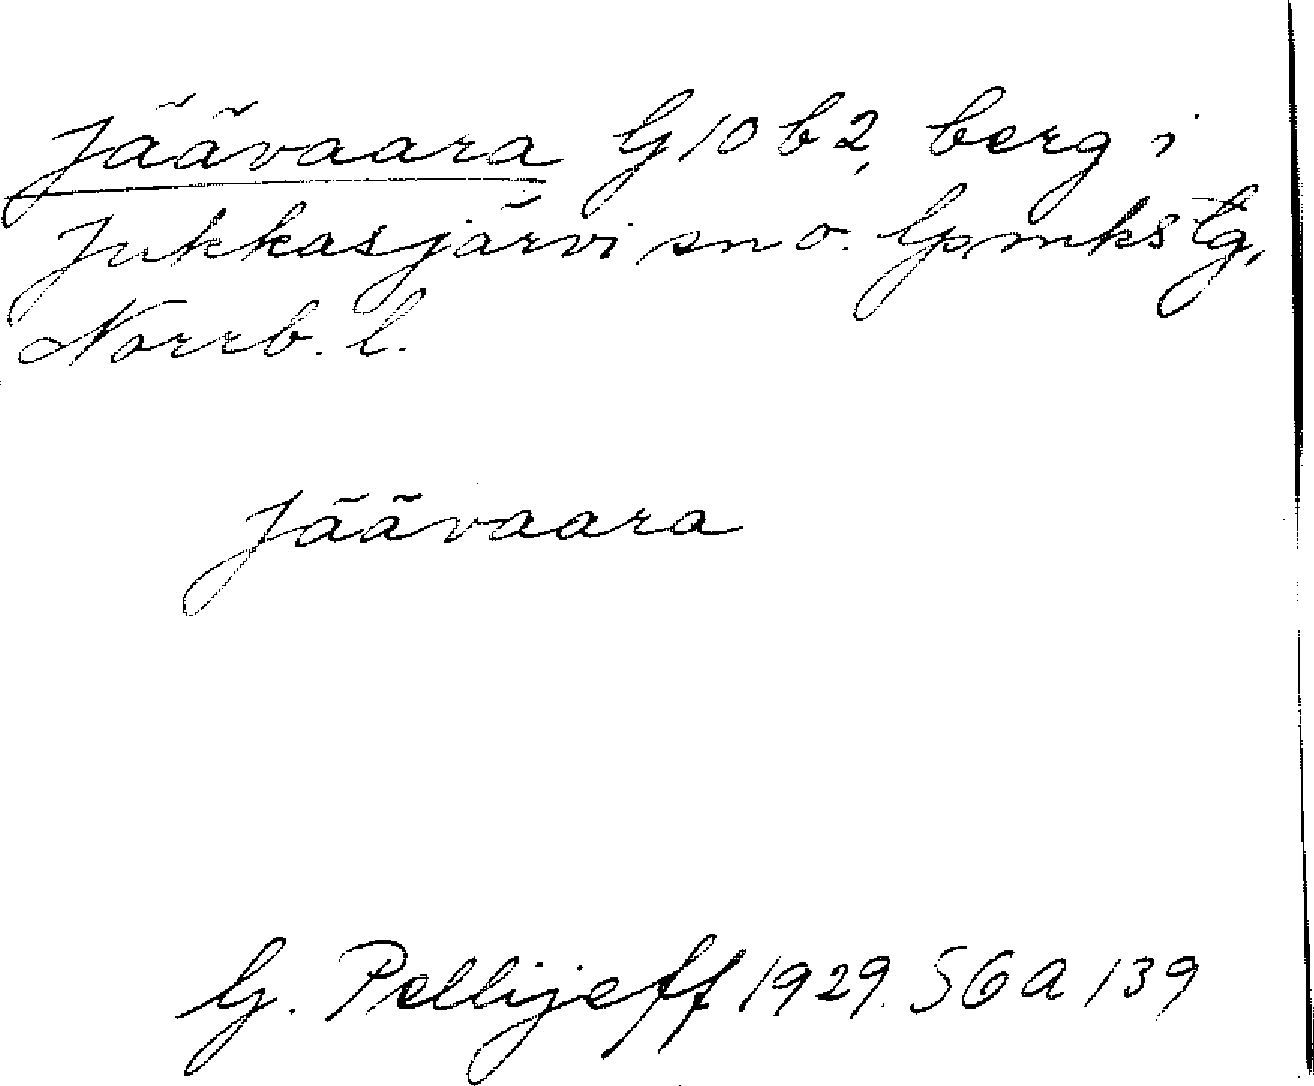 Jäävaara G 10 b 2, berg i
Jukkasjärvi sn o. lpmkstg,
Norrb. l.
Jäävaara
G. Pellijeff 1929. SGA 139